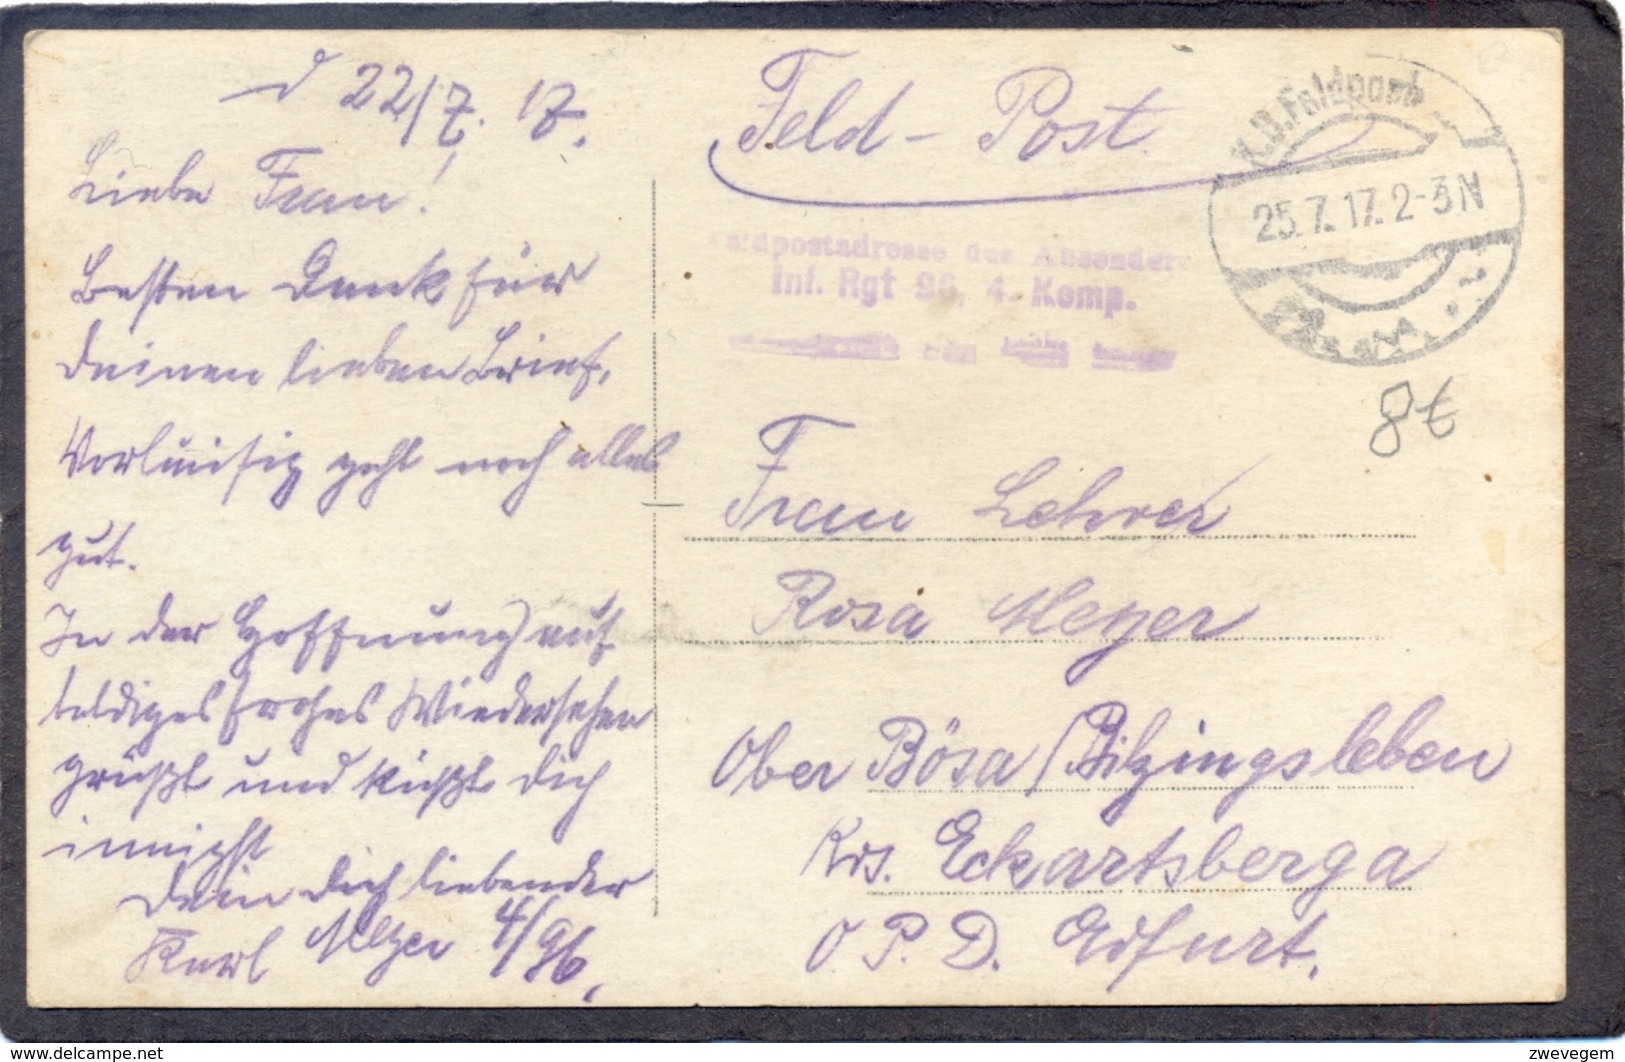 d 22/7. 17.
Liebe Frau!
Besten Dank für
Deinen lieben Brief.
Vorläufig geht noch alles
gut.
In der Hoffnung auf
baldiges frohes Wiedersehen
grüßt und küßt Dich
innigst
Dein Dich liebender
Karl Meyer 4/96.
Feld-Post
K.D. Feldpost
25.7.17. 2-3N
Feldpostadresse des Absenders
Inf. Rgt 96, 4. Komp.
8€
Frau Lehrer
Rosa Meyer
Ober Bösa / Bilzingsleben
Krs. Eckartsberga
O. P. D. Erfurt.
www.delcampe.net
zwevegem